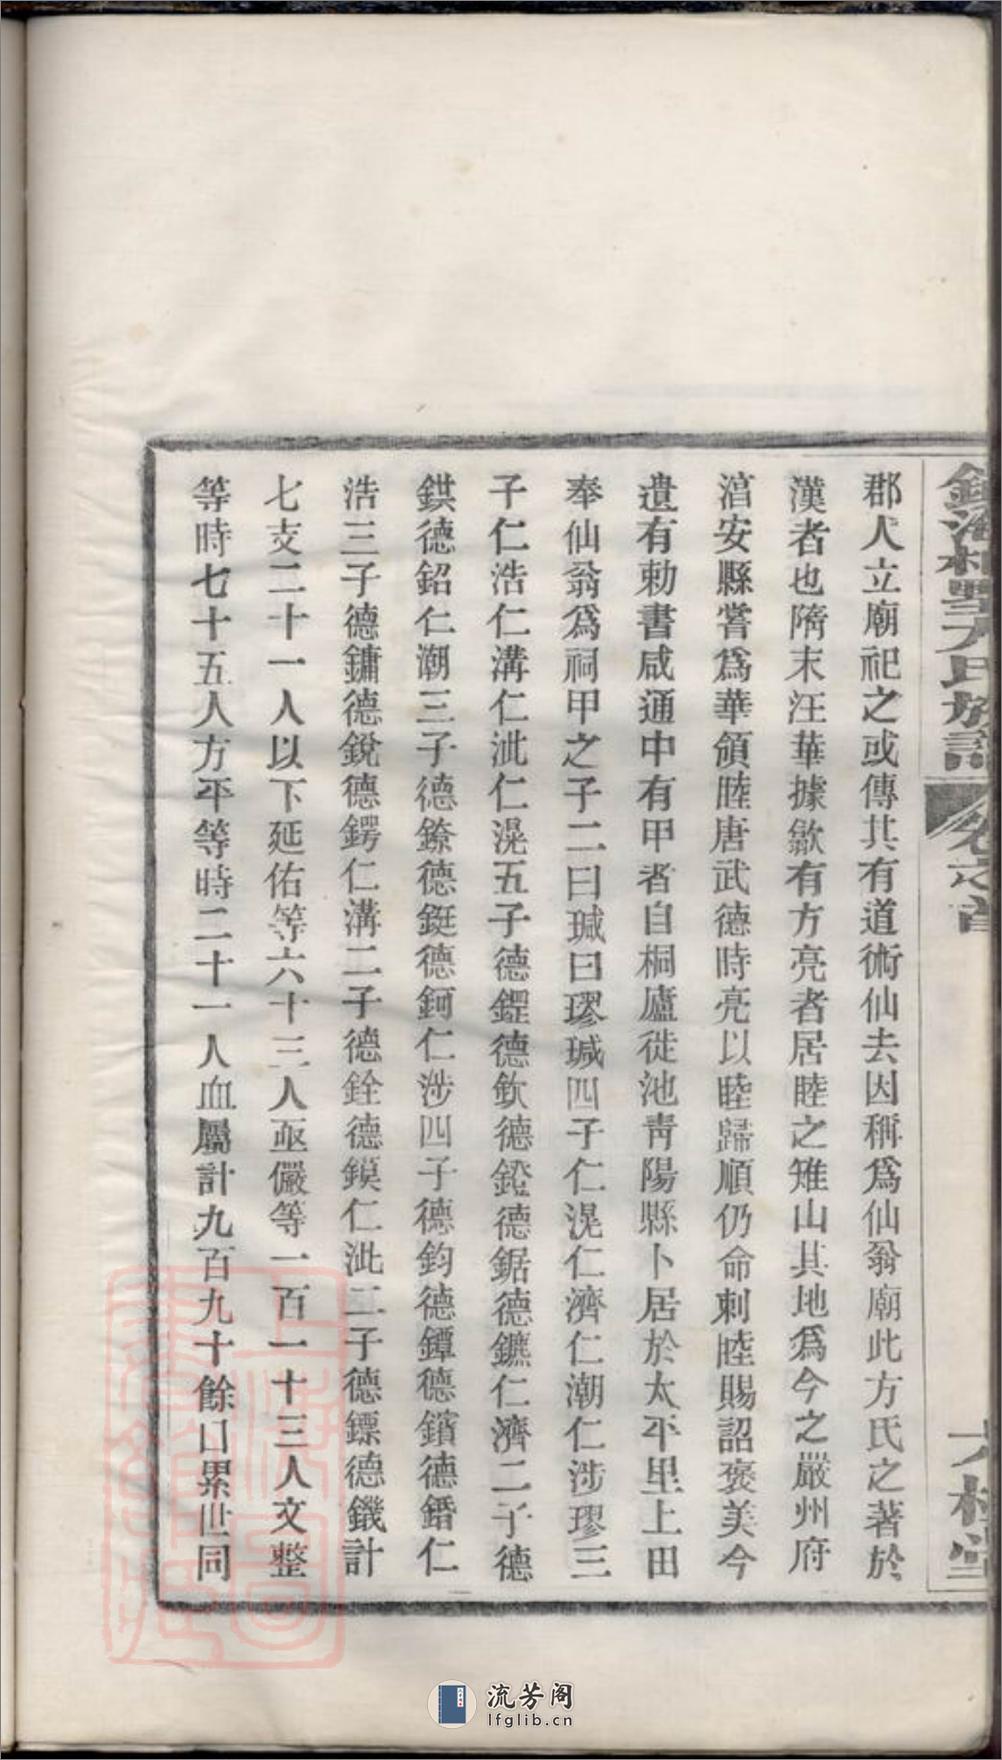 郡人立廟祀之或傳其有道術仙去因稱爲仙翁廟此方氏之著於
漢者也隋末汪華據歙有方亮者居睦之雉山其地爲今之嚴州府
湻安縣嘗爲華領睦唐武德時亮以睦歸順仍命刺睦賜詔褒美今
遺有勅書咸通中有甲者自桐廬徙池靑陽縣卜居於太平里上田
奉仙翁爲祠甲之子二曰瑊曰璆瑊四子仁滉仁濟仁潮仁涉璆三
子仁浩仁溝仁泚仁滉五子德鏗德欽德鐙德鋸德鑣仁濟二子德
錤德鉊仁潮三子德鐐德鋌德鈳仁涉四子德鈞德鐔德鑌德錉仁
浩三子德鏞德銳德鍔仁溝二子德銓德鏌仁泚二子德鏢德鐖計
七支二十一人以下延佑等六十三人亟儼等一百一十三人文整
等時七十五人方平等時二十一人血屬計九百九十餘口累世同
方氏族譜
卷之首
六桂堂
流芳阁
lfglib.cn